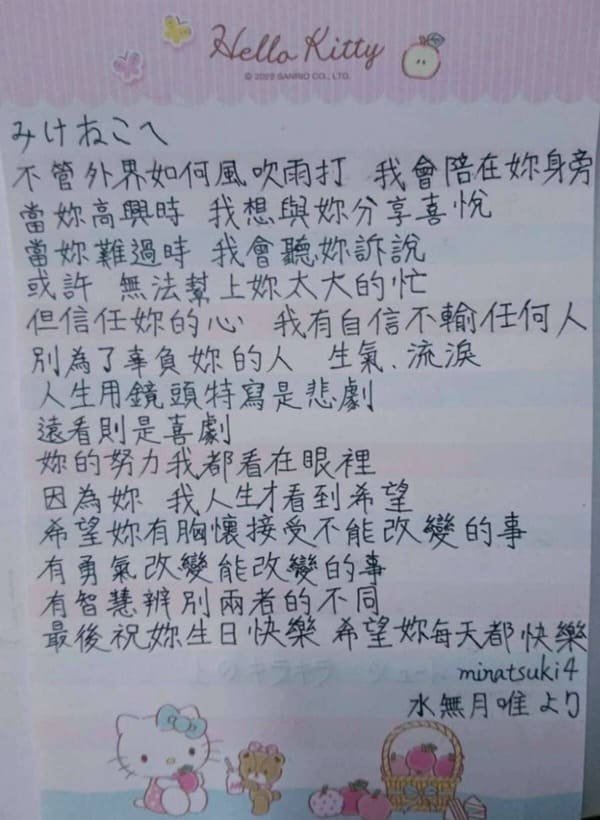 Hello Kitty
みけねこへ
不管外界如何風吹雨打 我會陪在妳身旁
當妳高興時 我想與妳分享喜悅
當妳難過時 我會聽妳訴說
或許 無法幫上妳太大的忙
但信任妳的心 我有自信不輸任何人
別為了辜負妳的人 生氣、流淚
人生用鏡頭特寫是悲劇
遠看則是喜劇
妳的努力我都看在眼裡
因為妳 我人生才看到希望
希望妳有胸懷接受不能改變的事
有勇氣改變能改變的事
有智慧辨別兩者的不同
最後祝妳生日快樂 希望妳每天都快樂
minatsuki4
水無月唯より